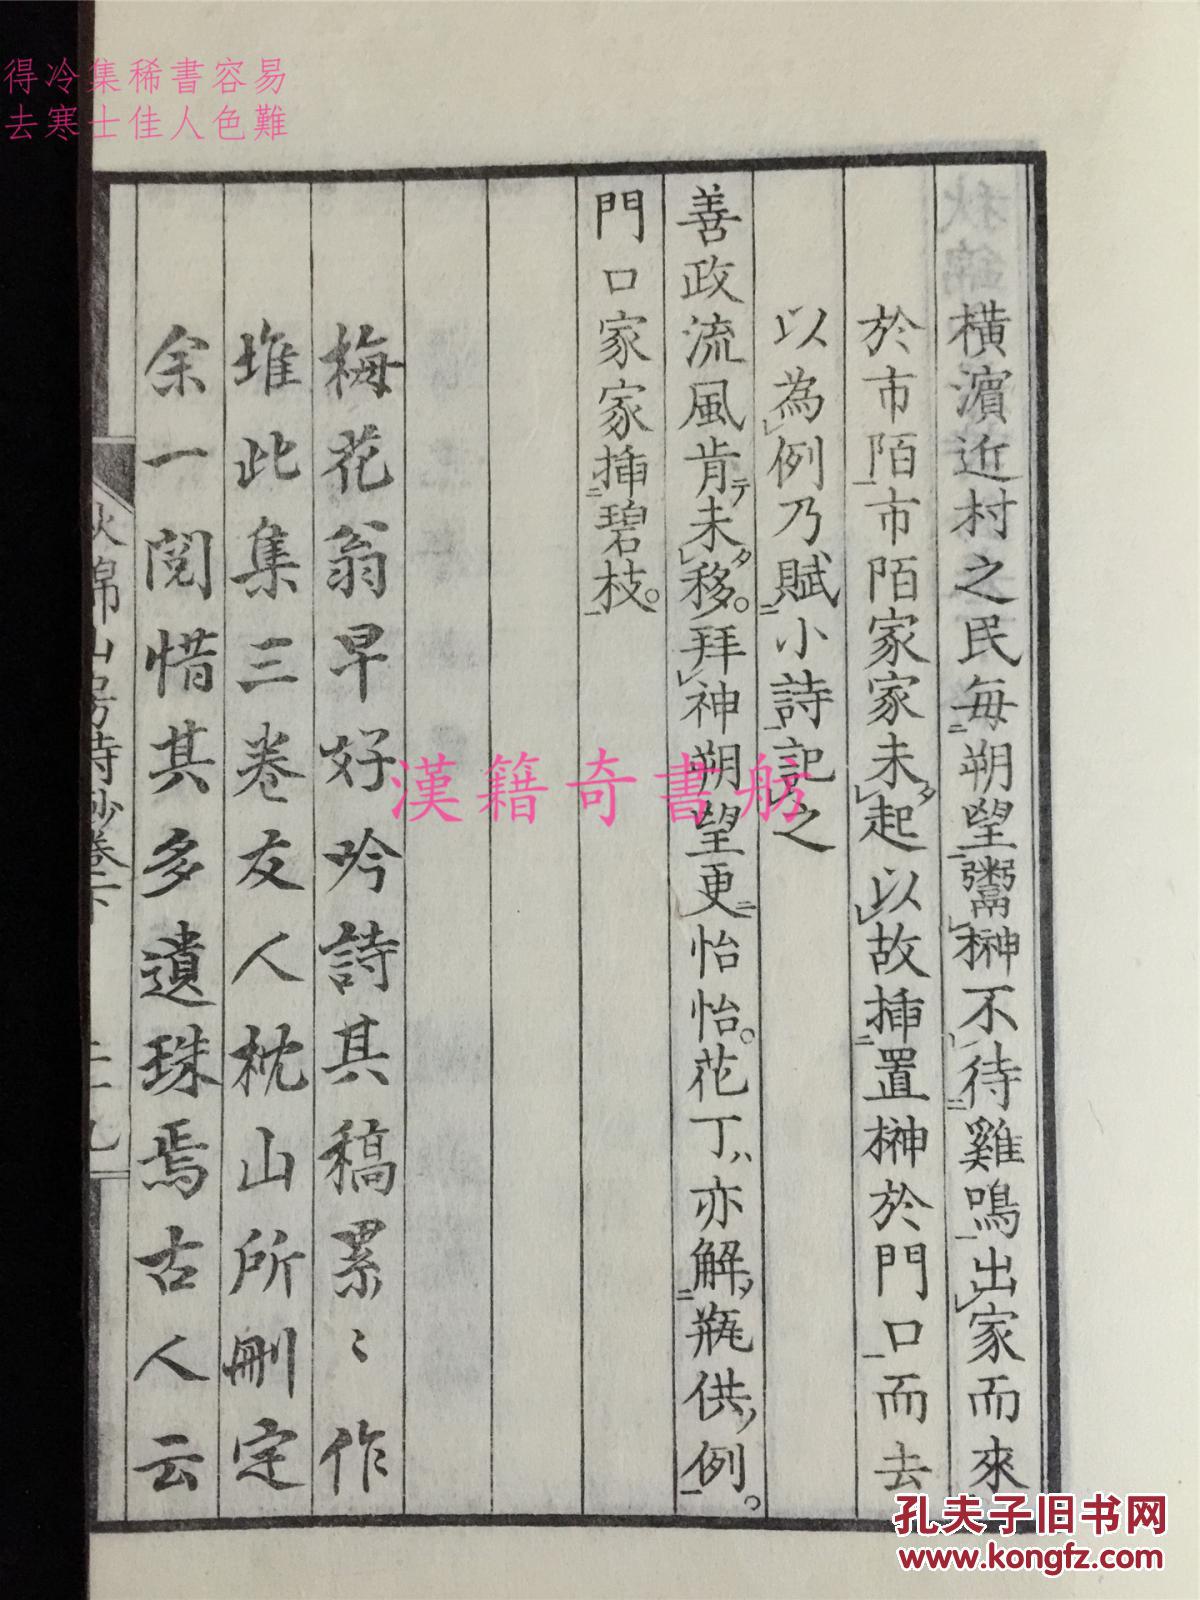 得冷集稀書容易
去寒士佳人色難
橫濵近村之民每朔望鬻榊不待雞鳴出家而來
於市陌市陌家家未起以故挿置榊於門口而去
以為例乃賦小詩記之
善政流風肯未移拜神朔望更怡怡花丁亦解瓶供例
門口家家挿碧枝
梅花翁早好吟詩其稿累〻作
堆此集三卷友人枕山所刪定
余一閲惜其多遺珠焉古人云
秋錦山房詩鈔卷下
二十九
漢籍奇書舫
孔夫子旧书网
www.kongfz.com